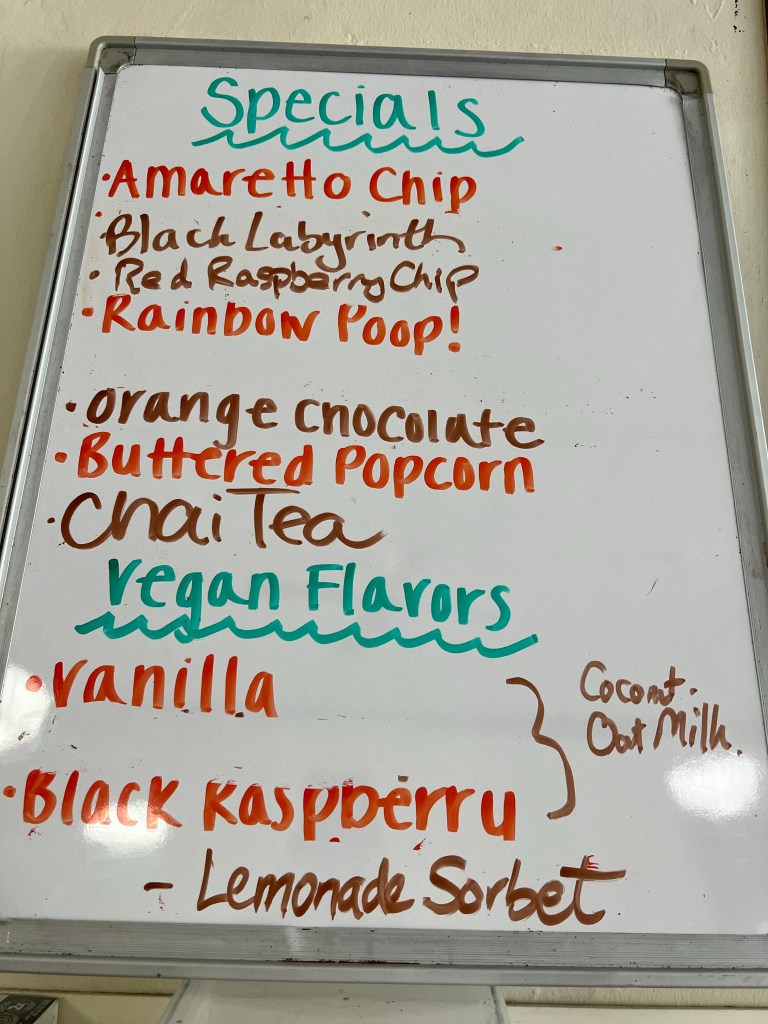 Specials
·Amaretto Chip
·Black Labyrinth
·Red Raspberry Chip
·Rainbow Poop!
·orange chocolate
·Buttered Popcorn
·Chai Tea
vegan Flavors
·vanilla
Coconut.
Oat Milk.
·Black Raspberry
- Lemonade Sorbet